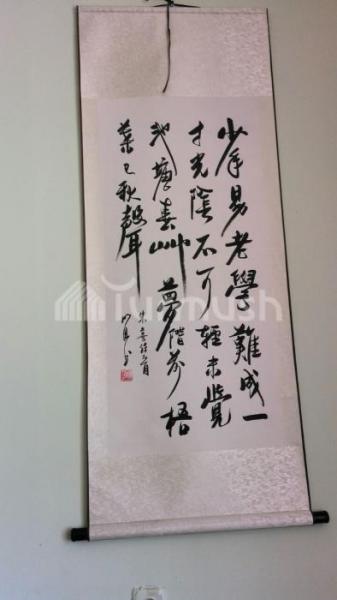 少年易老學難成一
寸光陰不可輕未覺
池塘春艸夢階前梧
葉已秋聲
朱熹詩